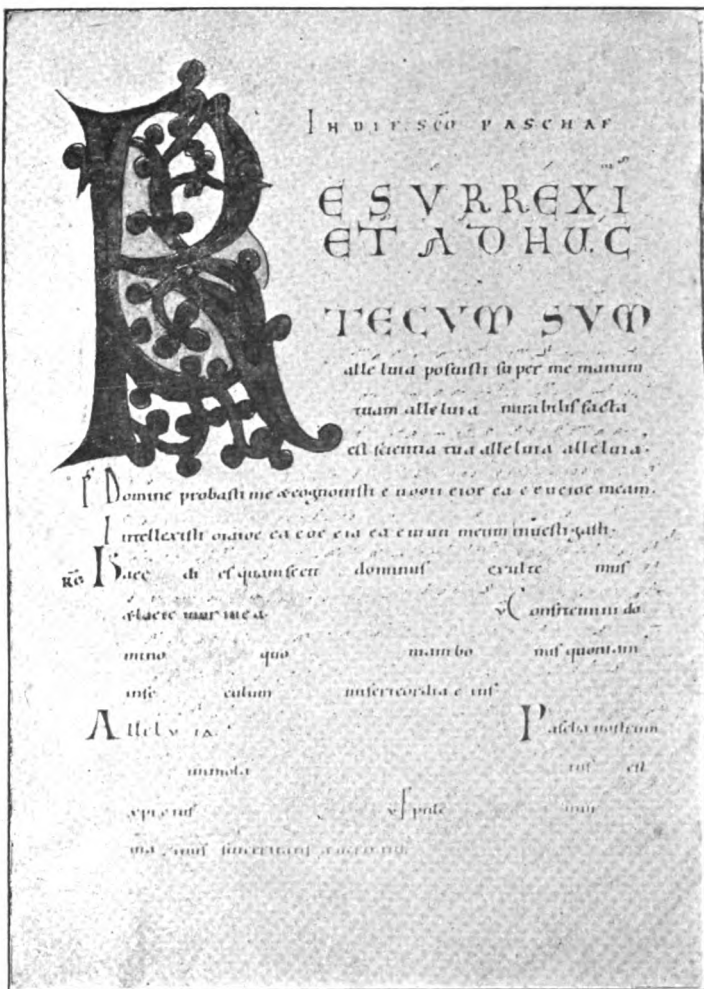 IN DIE SCO PASCHAE
RESURREXI
ET ADHUC
TECVM SVM
alleluia posuisti super me manum
tuam alleluia mirabilis facta
est scientia tua alleluia alleluia.
Domine probasti me & cognouisti e uoou eior ea c e ueioe meam.
Intellexisti meum inuestigasti.
RG Haec di es quam fecit dominus exulte mus
& laete mur in e a. V Confitemini do
mino quo niam bo nus quoniam
inse culum misericordia e ius
Allelu ia. Pascha nostrum
immola tus est
xpi c tus V pule mur
 sinceritatis